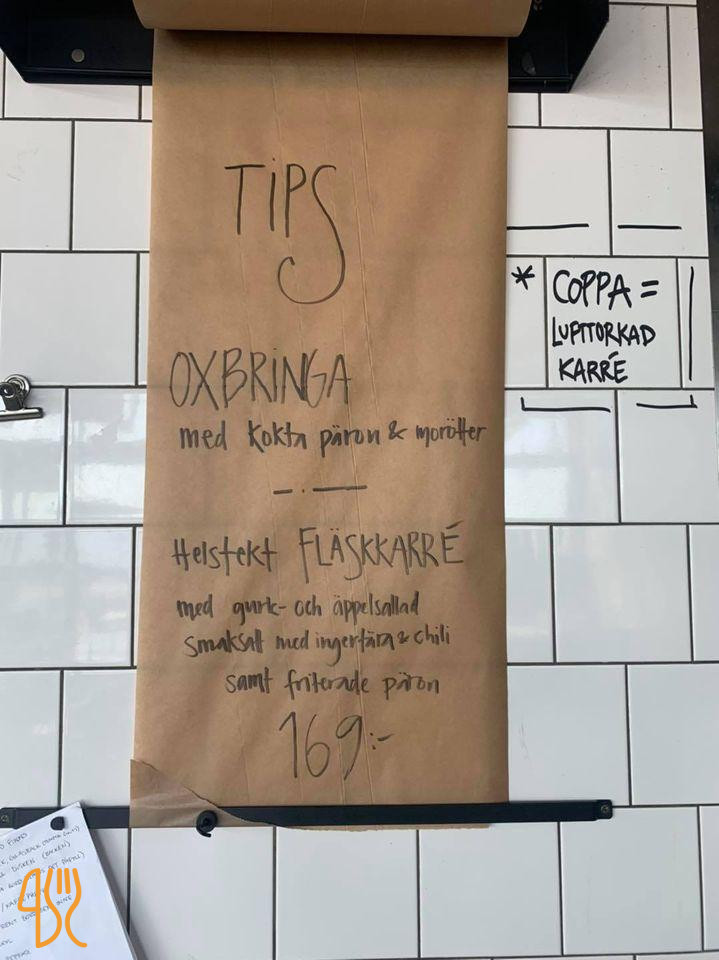 TIPS
OXBRINGA
med kokta päron & morötter
Helstekt FLÄSKKARRÉ
med gurk- och äppelsallad
smaksatt med ingefära & chili
samt friterade päron
169:-
* COPPA =
LUFTTORKAD
KARRÉ